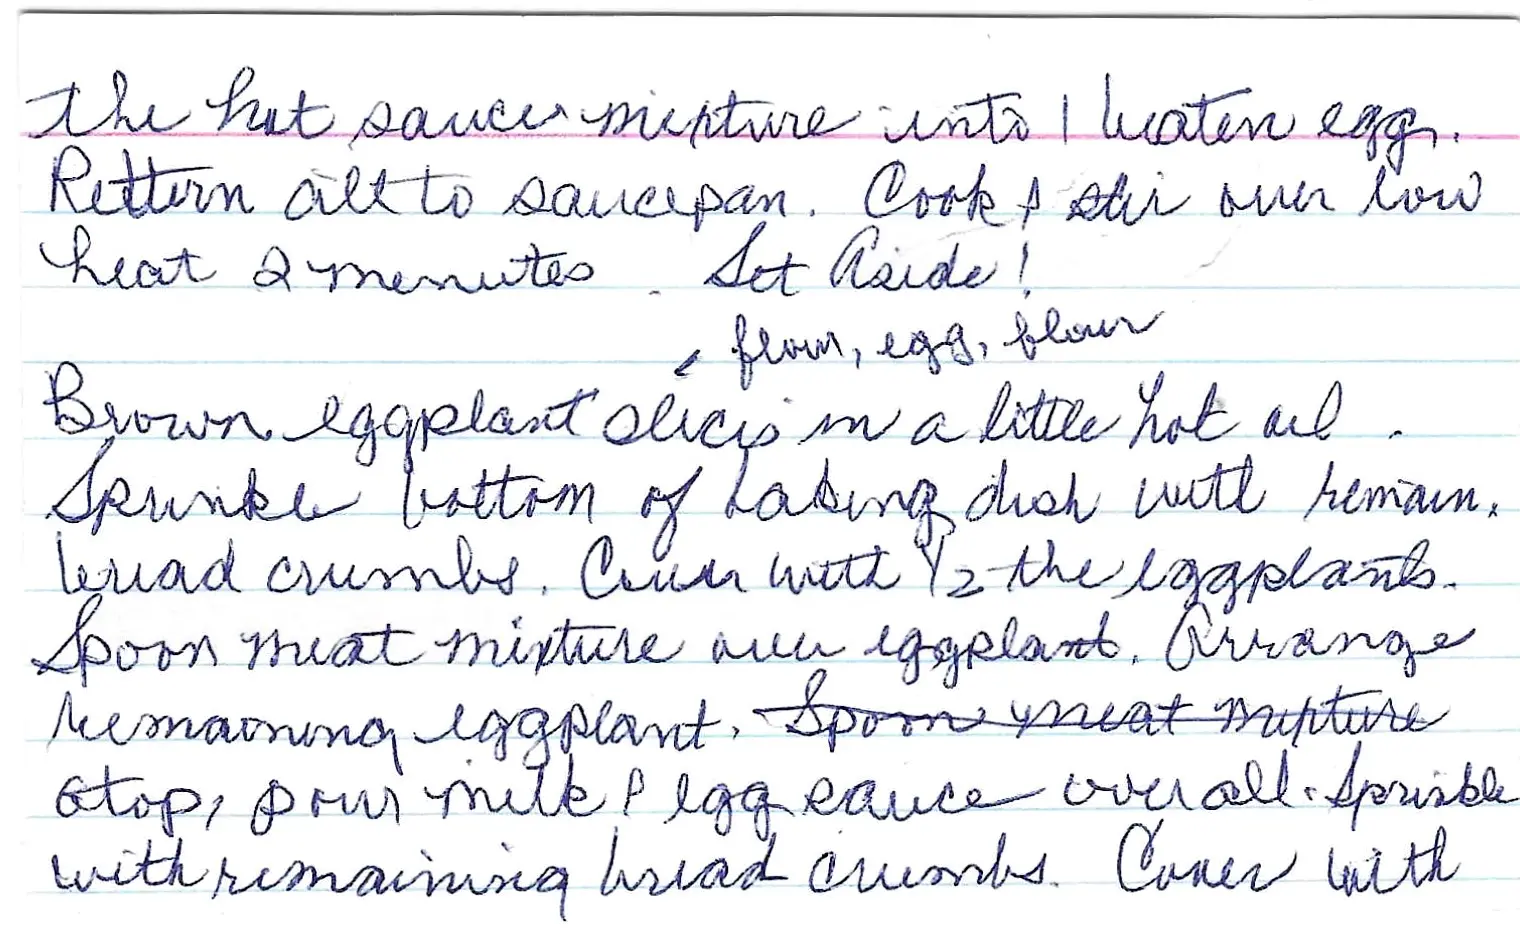 the hot sauce mixture into 1 beaten egg.
Return all to saucepan. Cook & stir over low
heat 2 minutes. Set Aside!
flour, egg, flour
Brown eggplant slices in a little hot oil.
Sprinkle bottom of baking dish with remain.
bread crumbs. Cover with 1/2 the eggplants.
Spoon meat mixture over eggplant. Arrange
remaining eggplant. Spoon meat mixture
atop, pour milk & egg sauce over all. Sprinkle
with remaining bread crumbs. Cover with